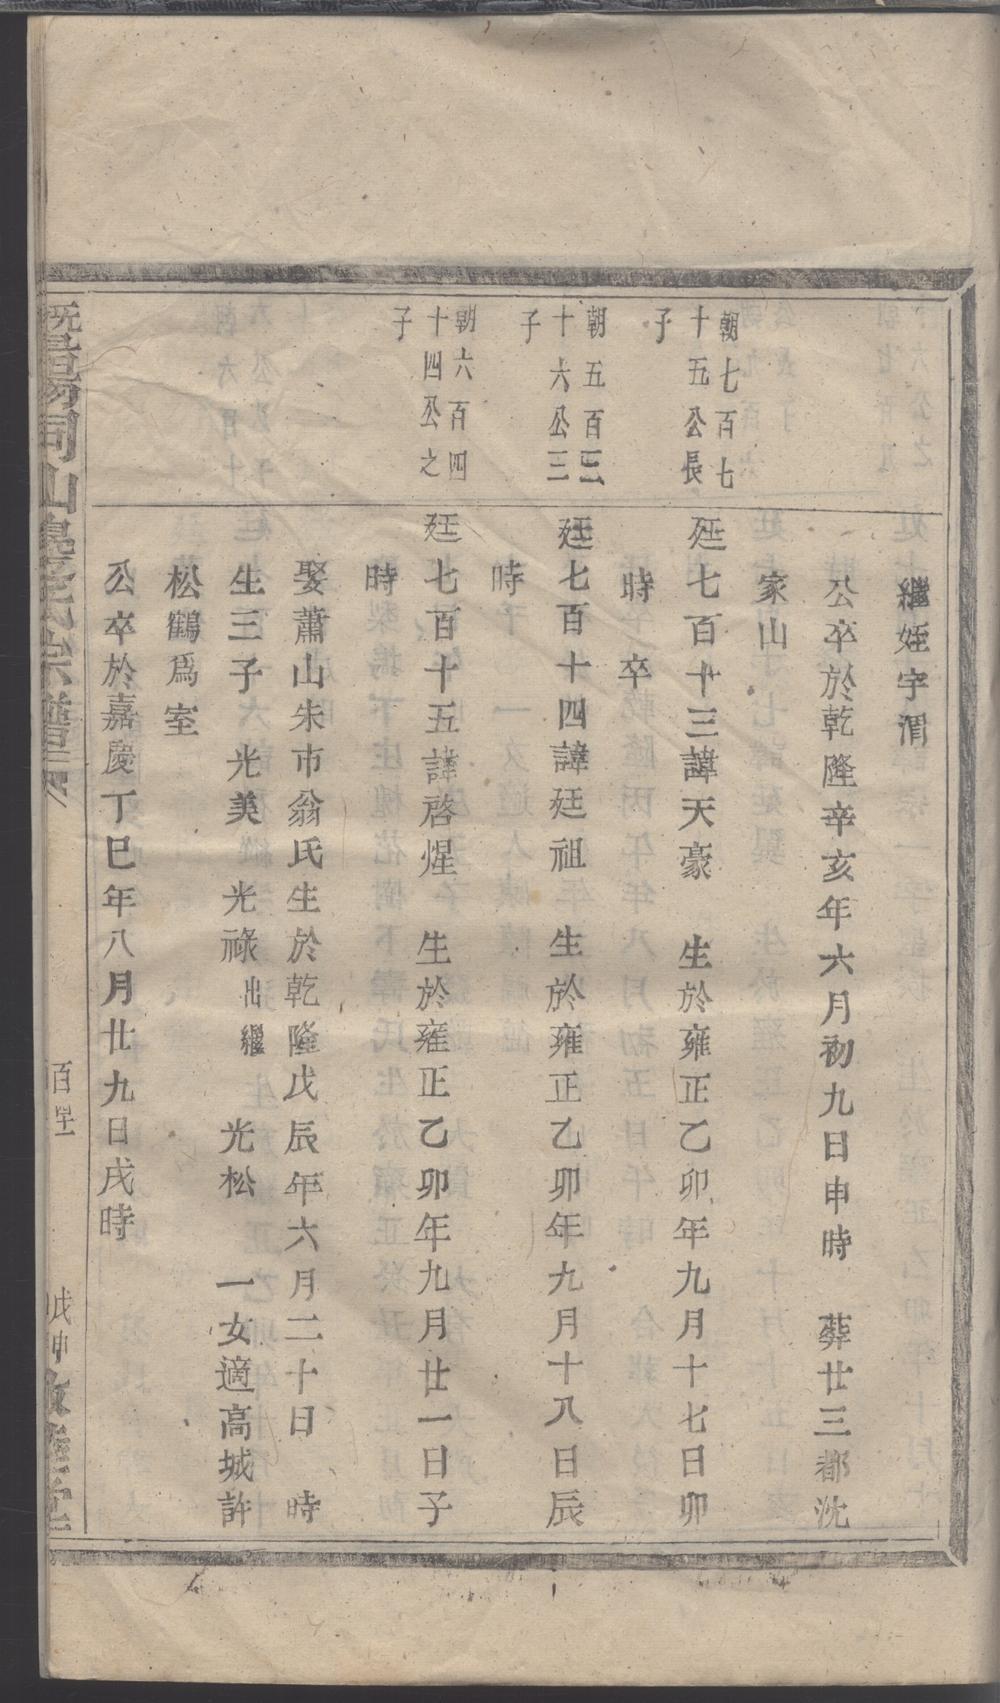 繼姪字淠
公卒於乾隆辛亥年六月初九日申時　葬廿三都沈
家山
朝七百七
十五公長
子
廷七百十三諱天豪　生於雍正乙卯年九月十七日卯
時　卒
朝五百三
十六公三
子
廷七百十四諱廷祖　生於雍正乙卯年九月十八日辰
時
朝六百四
十四公之
子
廷七百十五諱啓煋　生於雍正乙卯年九月廿一日子
時
娶蕭山朱市翁氏生於乾隆戊辰年六月二十日　時
生三子　光美　光祿出繼　光松　一女適高城許
松鶴爲室
公卒於嘉慶丁巳年八月廿九日戌時
暨陽同山邊氏宗譜
戊申敦睦堂